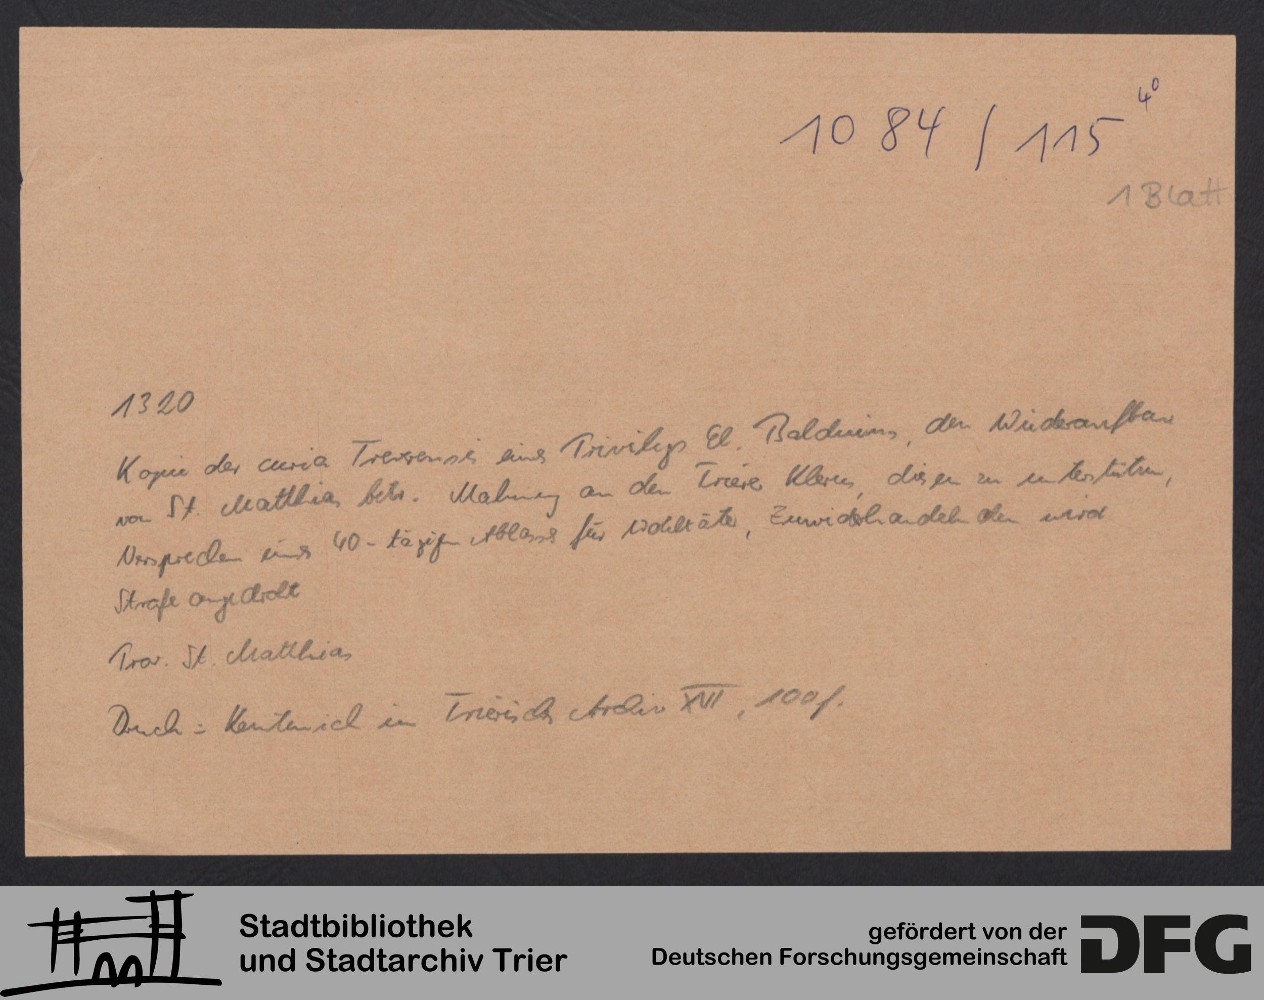 1084 / 115 4°
1 Blatt
1320
Kopie der curia Treverensis eines Privilegs Eb. Balduins, den Wiederaufbau
von St. Matthias betr. Mahnung an den Trierer Klerus, diesen zu unterstützen,
Versprechen eines 40-tägigen Ablasses für Wohltäter, Zuwiderhandelnden wird
Strafe angedroht
Prov. St. Matthias
Druck: Kentenich in Trierisches Archiv XVII, 100f.
Stadtbibliothek
und Stadtarchiv Trier
gefördert von der
Deutschen Forschungsgemeinschaft
DFG